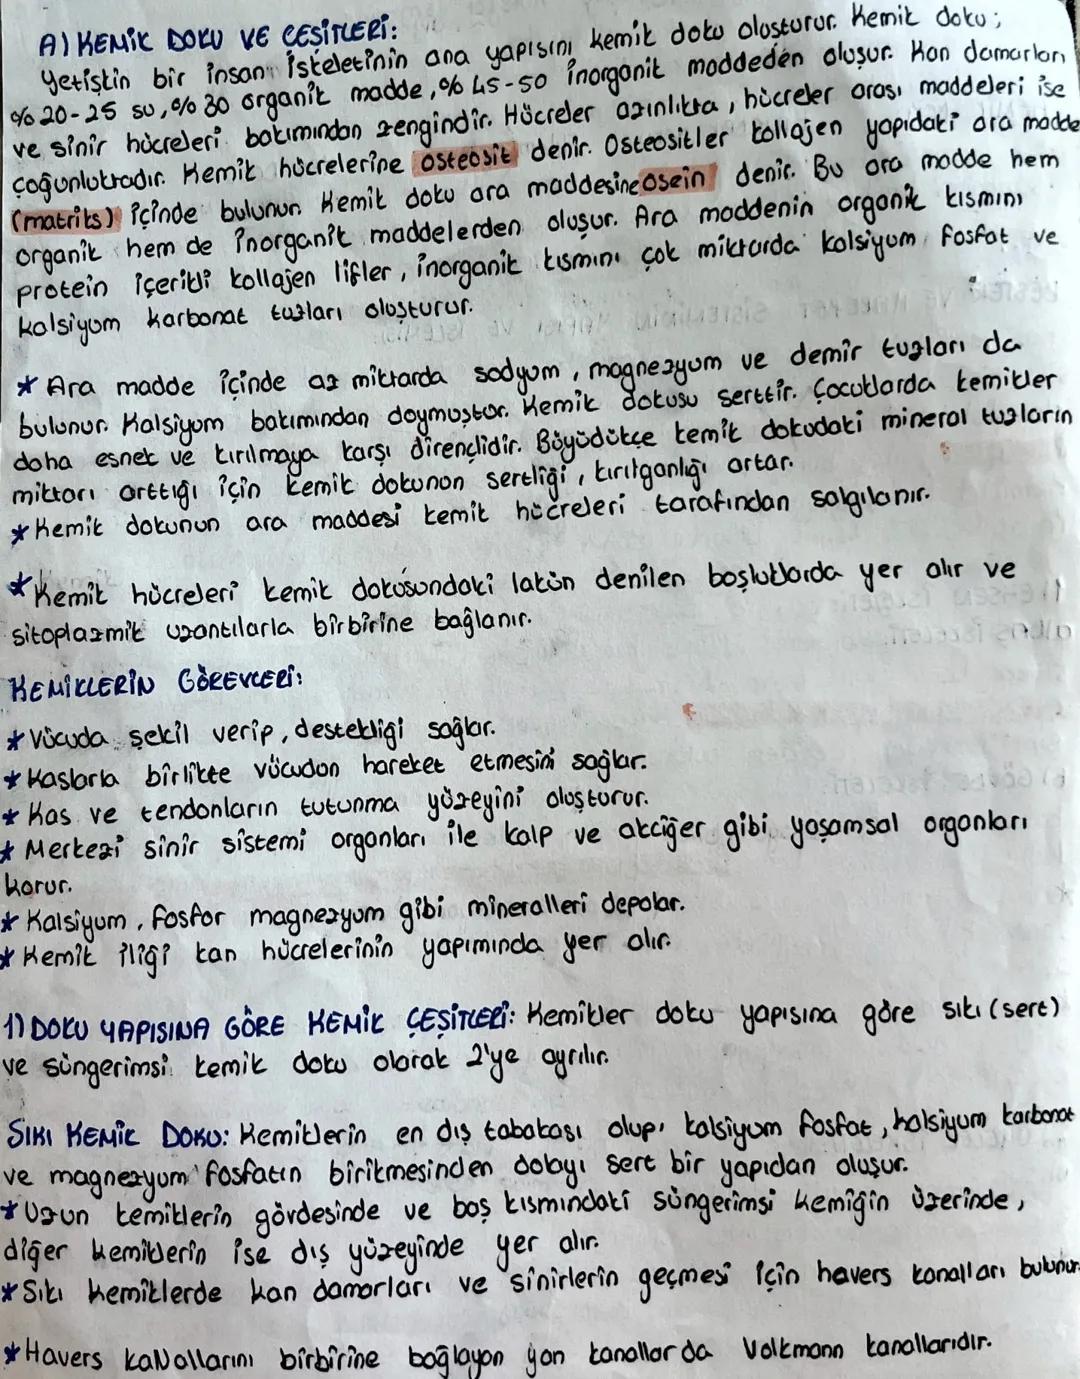 A) KEMİK DOKU VE ÇEŞİTLERİ:
Yetişkin bir insan iskeletinin ana yapısını kemik doku oluşturur. Kemik doku;
%20-25 su, %30 organik madde, %45-50 inorganik maddeden oluşur. Kan damarları
ve sinir hücreleri bakımından zengindir. Hücreler azınlıkta, hücreler arası maddeleri ise
çoğunluktadır. Kemik hücrelerine osteosit denir. Osteositler kollajen yapıdaki ara madde
(matriks) içinde bulunur. Kemik doku ara maddesine osein denir. Bu ara madde hem
organik hem de inorganik maddelerden oluşur. Ara maddenin organik kısmını
protein içerikli kollajen lifler, inorganik kısmını çok miktarda kalsiyum fosfat ve
kalsiyum karbonat tuzları oluşturur.
* Ara madde içinde az miktarda sodyum, magnezyum ve demir tuzları da
bulunur. Kalsiyum bakımından doymuştur. Kemik dokusu serttir. Çocuklarda kemikler
daha esnek ve kırılmaya karşı dirençlidir. Büyüdükçe kemik dokudaki mineral tuzların
miktarı arttığı için kemik dokunun sertliği, kırılganlığı artar.
* Kemik dokunun ara maddesi kemik hücreleri tarafından salgılanır.
* Kemik hücreleri kemik dokusundaki lakün denilen boşluklarda yer alır ve
sitoplazmik uzantılarla birbirine bağlanır.
KEMİKLERİN GÖREVLERİ:
* Vücuda şekil verip, destekliği sağlar.
* Kaslarla birlikte vücudun hareket etmesini sağlar.
* Kas ve tendonların tutunma yüzeyini oluşturur.
* Merkezi sinir sistemi organları ile kalp ve akciğer gibi yaşamsal organları
korur.
* Kalsiyum, fosfor magnezyum gibi mineralleri depolar.
* Kemik iliği kan hücrelerinin yapımında yer alır.
1) DOKU YAPISINA GÖRE KEMİK ÇEŞİTLERİ: Kemikler doku yapısına göre sıkı (sert)
ve süngerimsi kemik doku olarak 2'ye ayrılır.
SIKI KEMİK DOKU: Kemiklerin en dış tabakası olup, kalsiyum fosfat, kalsiyum karbonat
ve magnezyum fosfatın birikmesinden dolayı sert bir yapıdan oluşur.
* Uzun kemiklerin gövdesinde ve baş kısmındaki süngerimsi kemiğin üzerinde,
diğer kemiklerin ise dış yüzeyinde yer alır.
* Sıkı kemiklerde kan damarları ve sinirlerin geçmesi için havers kanalları bulunur.
* Havers kanallarını birbirine bağlayan yan kanallar da Volkmann kanallarıdır.